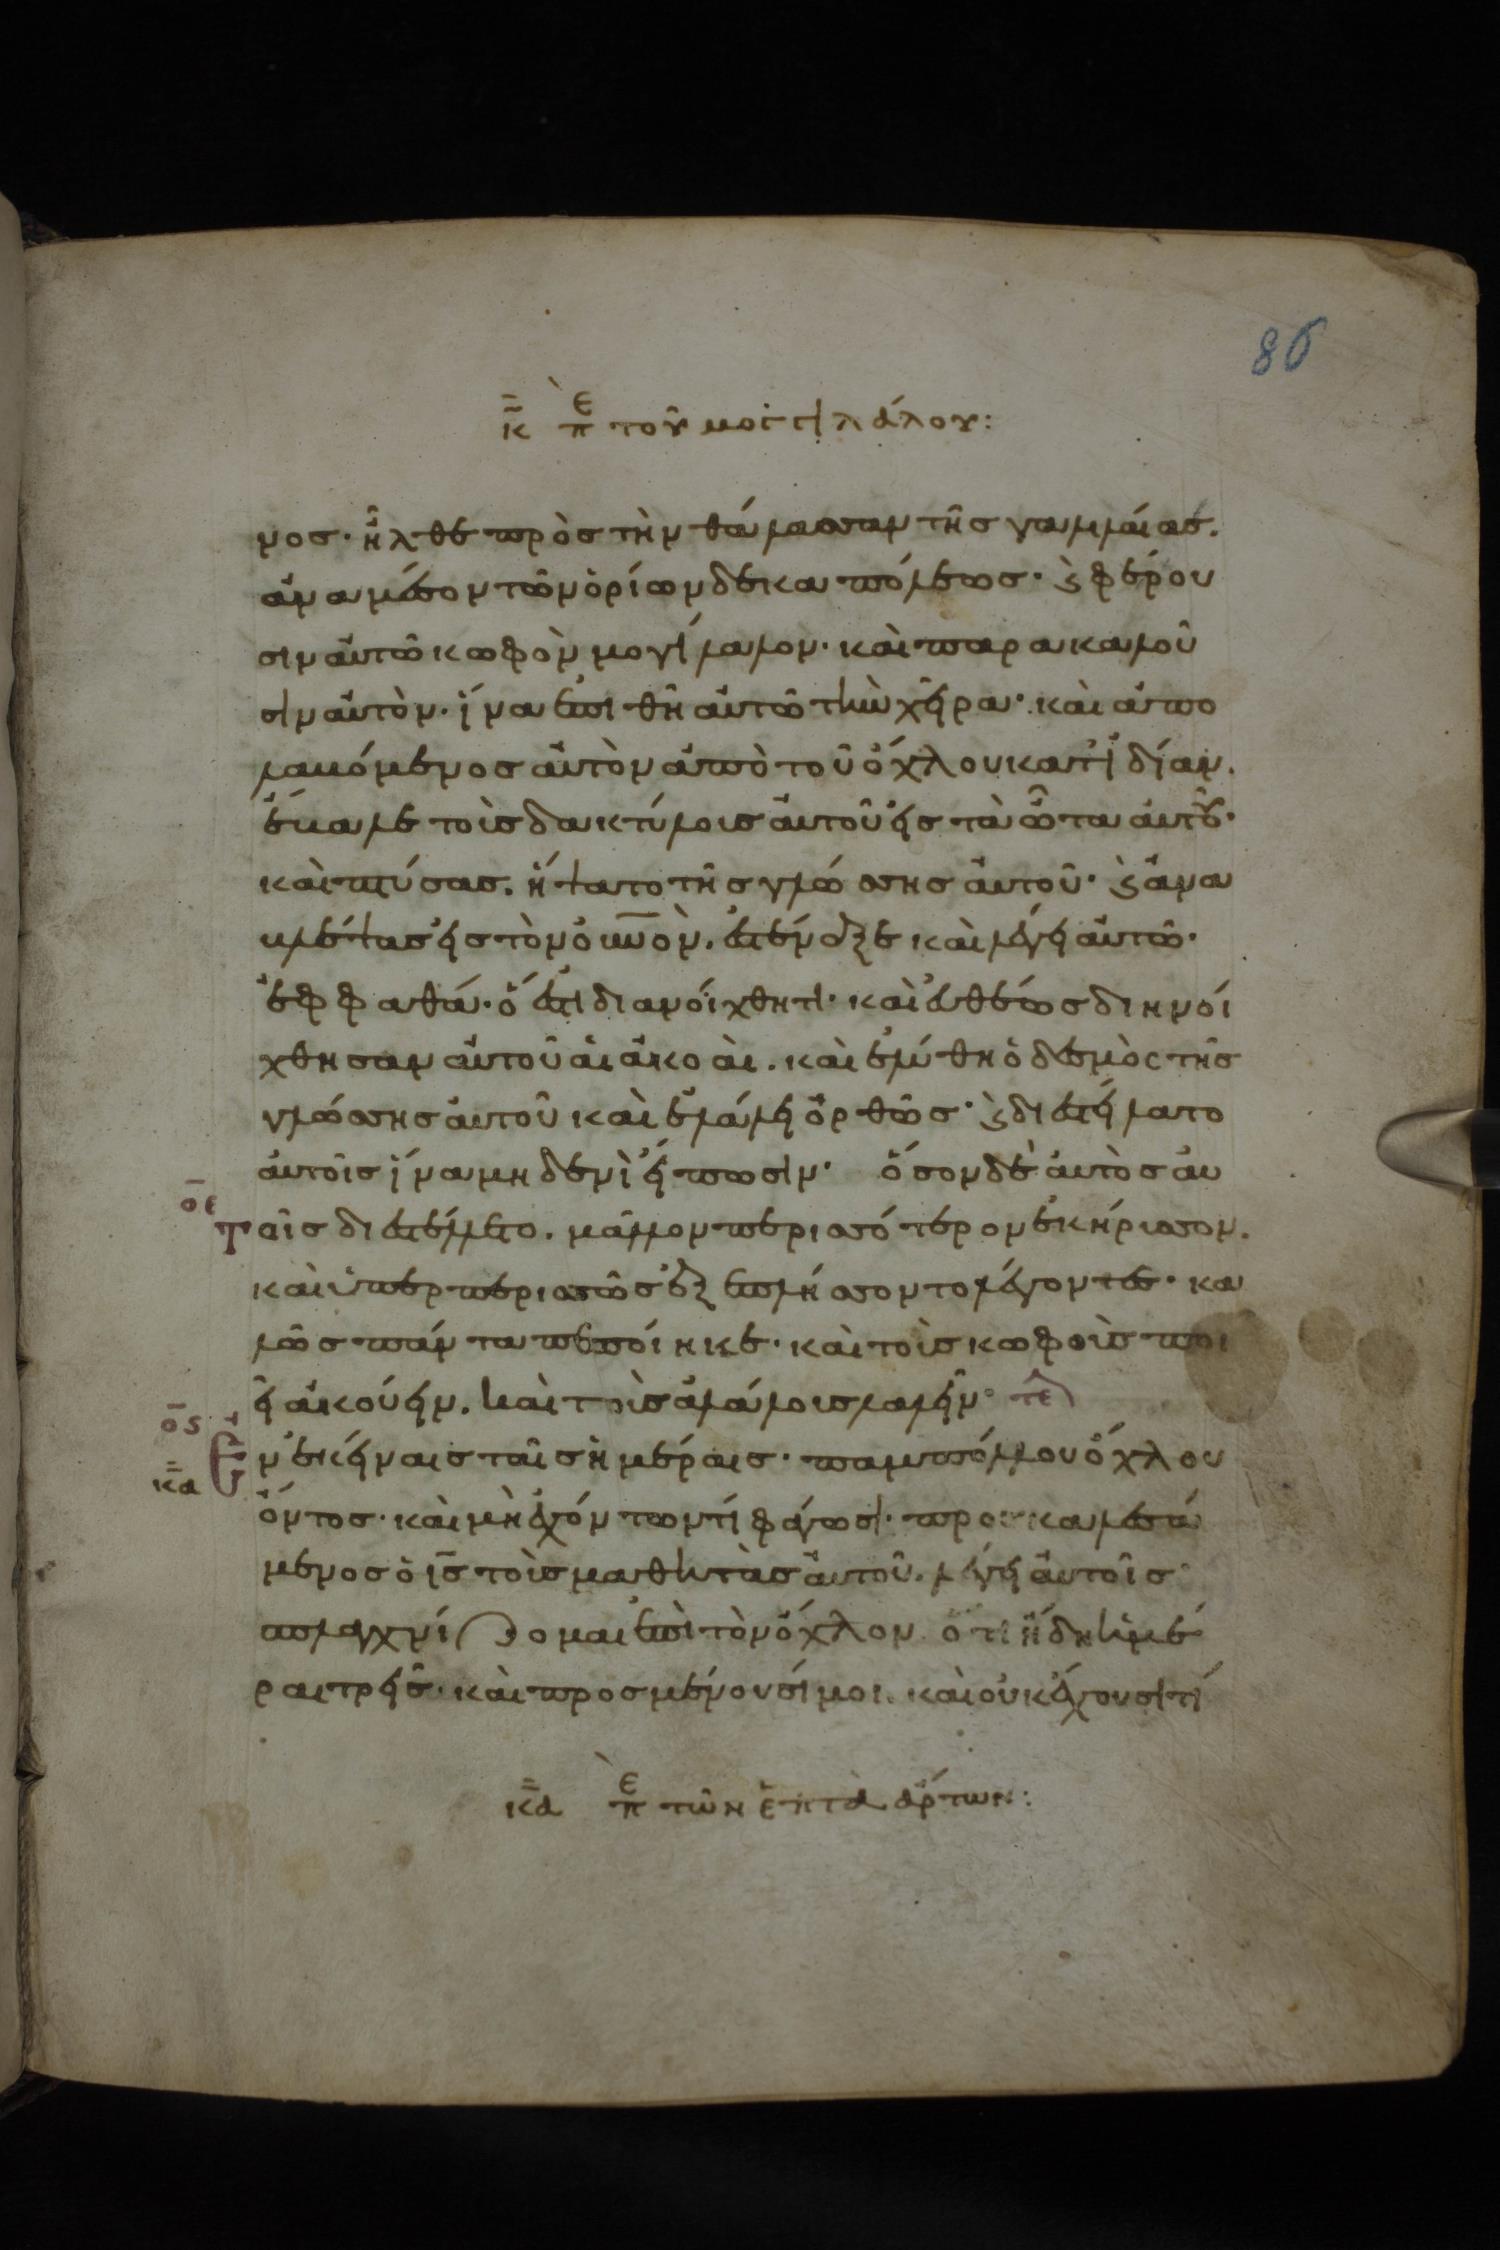 86
κ̄ πε τοῦ μογγιλάλου:
νος· ἦλθε πρὸς τὴν θάλασσαν τῆς γαλιλαίας.
ἀνα μέσον τῶν ὁρίων δεκαπόλεως· ϗ φέρου
σιν αὐτῶ κωφὸν μογίλαλον· καὶ παρακαλοῦ
σιν αὐτὸν· ἵνα ἐπιθῆ αὐτῶ τὴν χεῖρα· καὶ ἀπο
λαβόμενος αὐτὸν ἀπὸ τοῦ ὄχλου κατ' ἰδίαν.
ἔβαλε τοὺς δακτύλους αὐτοῦ εἰς τὰ ὦτα αὐτοῦ·
καὶ πτύσας. ἥψατο τῆς γλώσσης αὐτοῦ· ϗ ἀνα
βλέψας εἰς τὸν οὐνον. ἐστέναξε καὶ λέγει αὐτῶ·
ἐφφαθά· ὅ ἐστι διανοίχθητι· καὶ εὐθέως διηνοί
χθησαν αὐτοῦ αἱ ἀκοαὶ. καὶ ἐλύθη ὁ δεσμὸς τῆς
γλώσσης αὐτοῦ καὶ ἐλάλει ὀρθῶς· ϗ διεστείλατο
αὐτοῖς ἵνα μηδενὶ εἴπωσιν· ὅσον δὲ αὐτὸς αυ
οε
τοῖς διεστέλλετο. μᾶλλον περισσότερον ἐκήρυσσον.
καὶ ὑπερπερισσῶς ἐξεπλήσσοντο λέγοντες· κα
λῶς πάντα πεποίηκε· καὶ τοὺς κωφοὺς ποι
εῖ ἀκούειν. καὶ τοὺς ἀλάλους λαλεῖν· τε
ος
Ἐν ἐκείναις ταῖς ἡμέραις· παμπόλλου ὄχλου
κα
ὄντος· καὶ μὴ ἐχόντων τί φάγωσι· προσκαλεσά
μενος ὁ ις τοὺς μαθητὰς αὐτοῦ. λέγει αὐτοῖς·
σπλαγχνίζομαι ἐπὶ τὸν ὄχλον ὅτι ἤδη ἡμέ
ραι τρεῖς· καὶ προσμένουσί μοι. καὶ οὐκ ἔχουσι τί
κα πε τῶν ἑπτὰ ἄρτων: